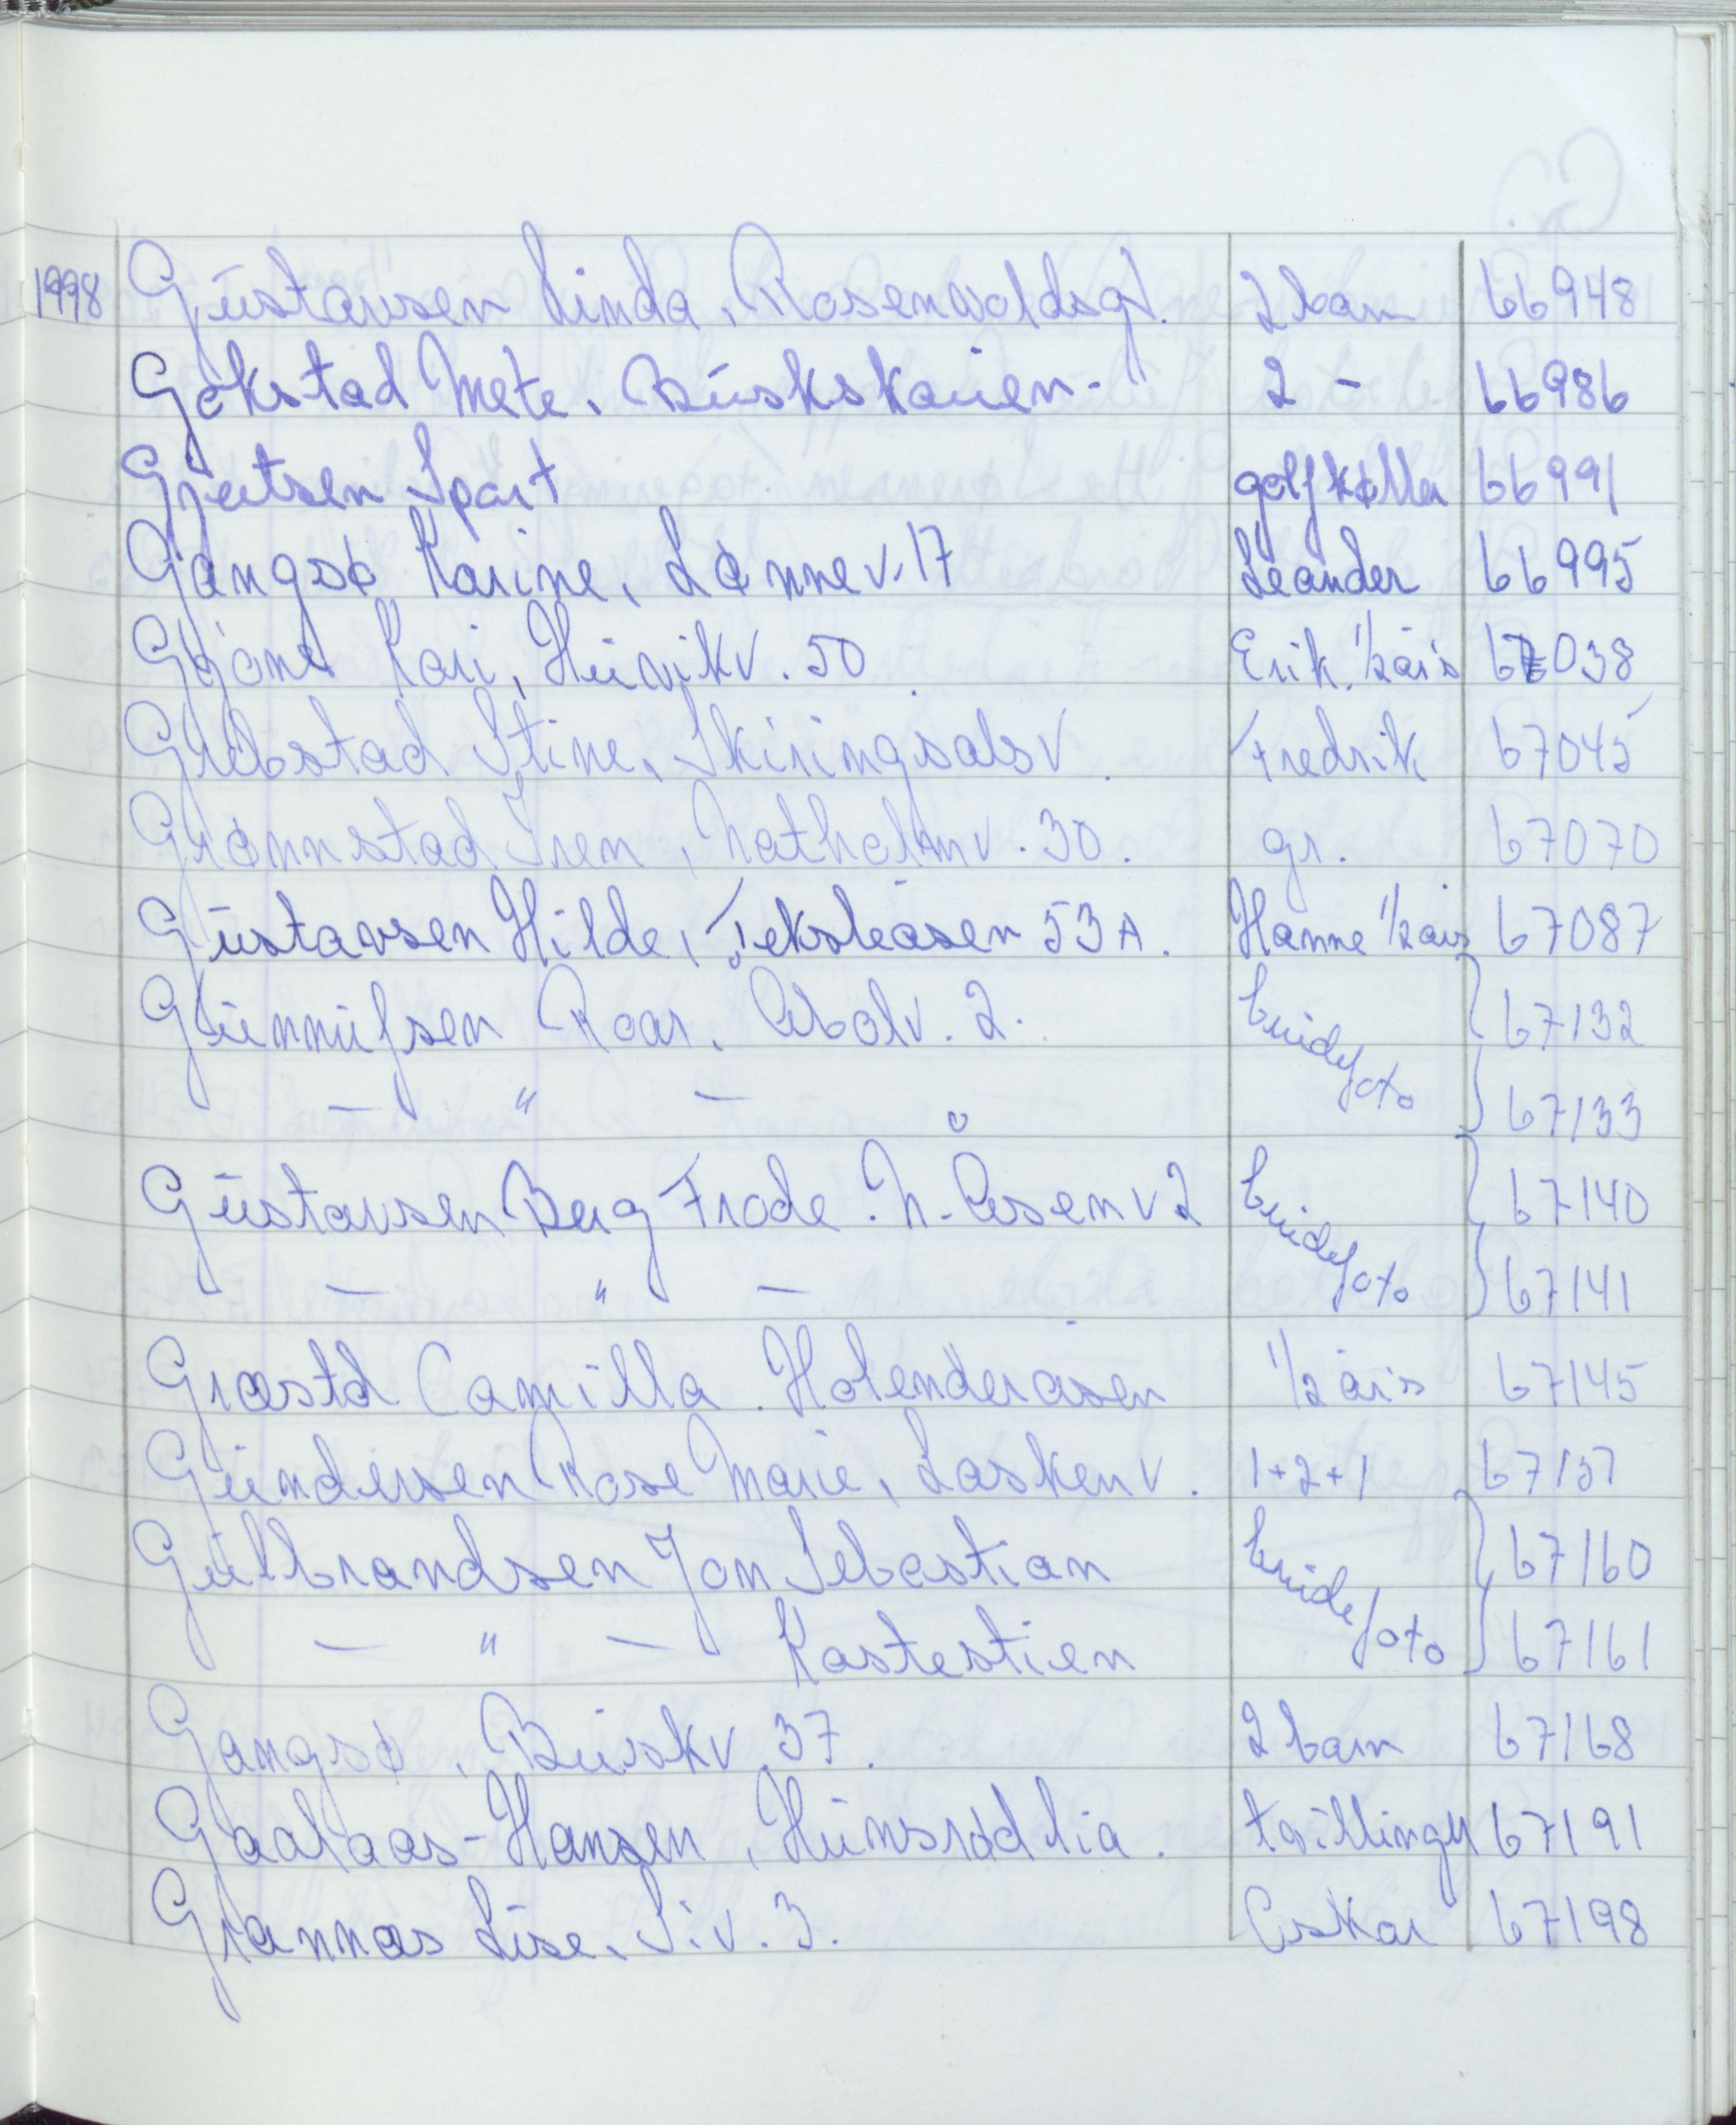 1998 Gustavsen Linda, Rosenvoldsgt. 2 barn 66948
Gokstad Mete, Buskskauen - 2 - 66986
Gjertsen Sport golfkøller 66991
Gangsø Karine, Lønnev. 17 Leander 66995
Gjone Kari, Huvikv. 50 Erik. 1/2 års 67038
Grebstad Stine, Skiringsalsv. Fredrik 67045
Grønnstad Iren, Natholmv. 30. gr. 67070
Gustavsen Hilde, Feksleåsen 53A. Hanne 1/2 års 67087
Gunnufsen Roar, Åbolv. 2. brudefoto } 67132
— " — } 67133
Gustavsen Berg Frode. N. Åsenv 2 brudefoto } 67140
— " — } 67141
Græstd Camilla. Holenderåsen 1/2 års 67145
Gundersen Rose Marie, Laskenv. 1+2+1 67157
Gulbrandsen Jon Sebastian brudefoto } 67160
— " — Kastestien } 67161
Gangsø, Buskv. 37. 2 barn 67168
Gaalaas-Hansen, Hunsrødlia. tvillinger 67191
Grannas Lise, S.v. 3. Oskar 67198